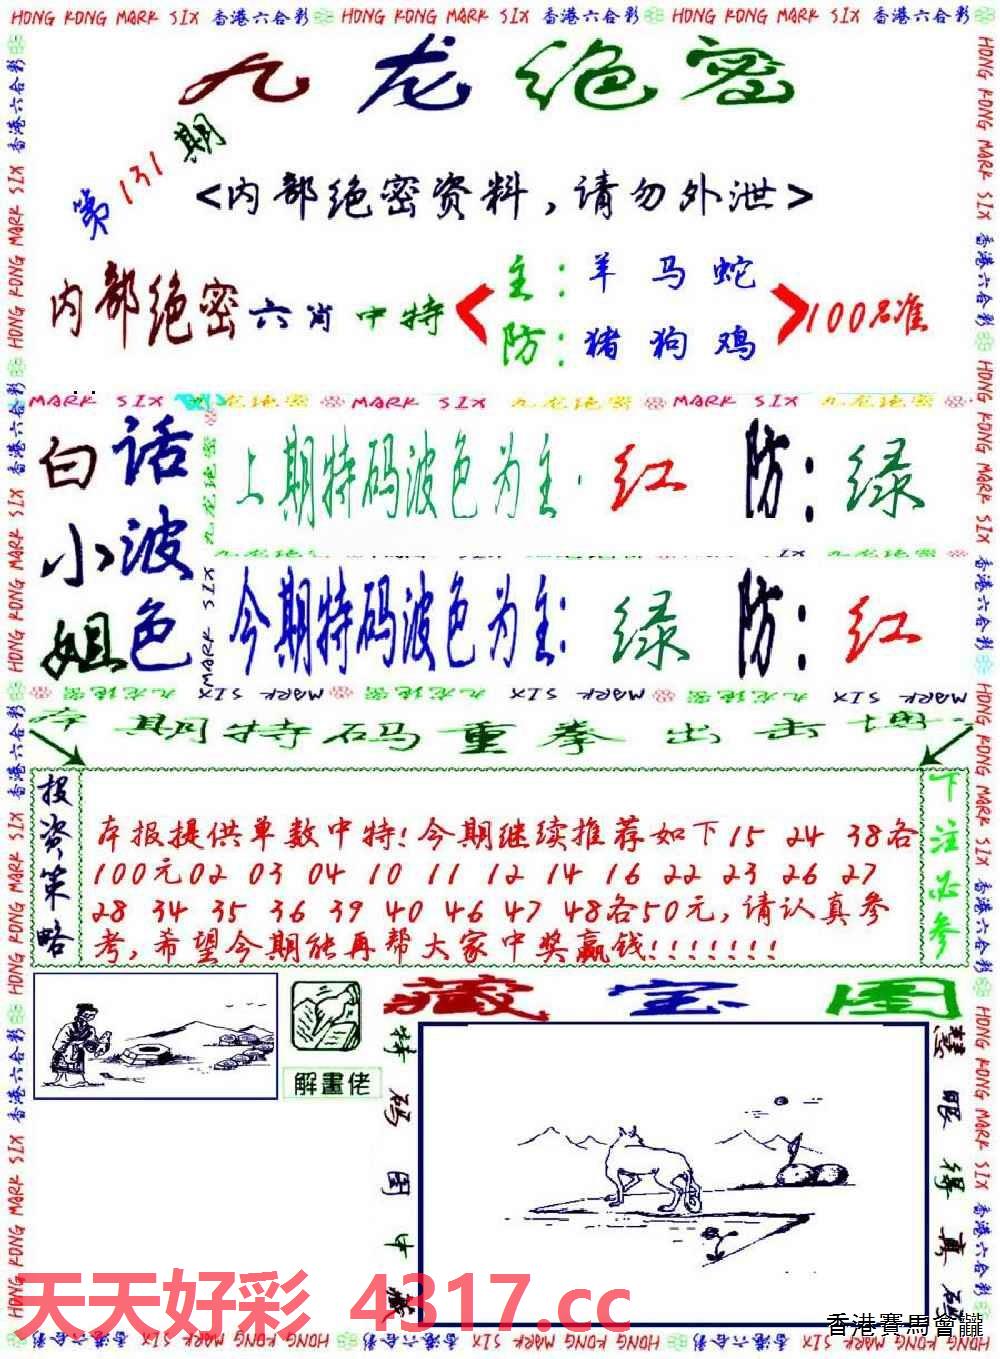 HONG KONG MARK SIX 香港六合彩 HONG KONG MARK SIX 香港六合彩 HONG KONG MARK SIX 香港六合彩
九龙绝密
第131期
<内部绝密资料,请勿外泄>
内部绝密六肖中特
主:羊 马 蛇
防:猪 狗 鸡
100%准
MARK SIX 九龙绝密 MARK SIX 九龙绝密 MARK SIX
白小姐
话波色
上期特码波色为主·红 防:绿
今期特码波色为主:绿 防:红
本期特码重拳出击
投资策略
本报提供单数中特!今期继续推荐如下15 24 38各
100元02 03 04 10 11 12 14 16 22 23 26 27
28 34 35 36 39 40 46 47 48各50元,请认真参
考,希望今期能再帮大家中奖赢钱!!!!!!!
下注必参
解畫佬
藏宝图
特码图中藏
慧眼得真码
天天好彩 4317.cc
香港賽馬會